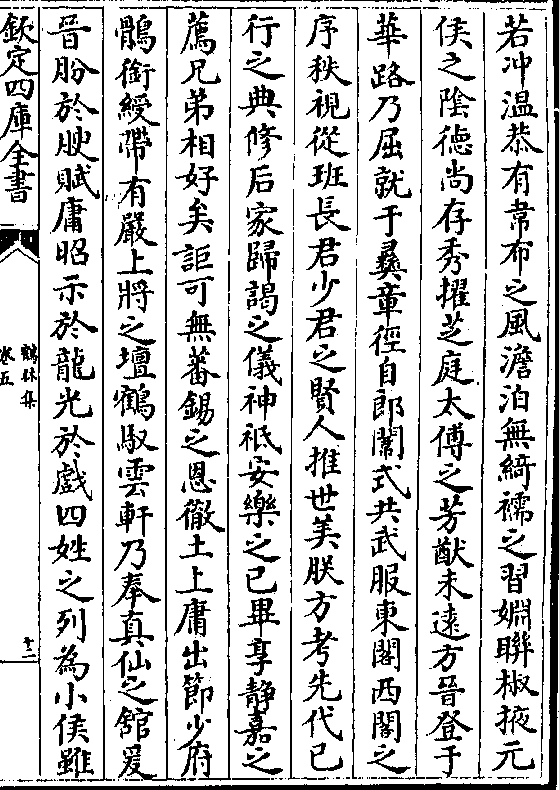 若冲温恭有韋布之風澹泊無綺襦之習婣聨椒掖元
侯之隂德尚存秀擢芝庭太傅之芳猷未逺方晉登于
華路乃屈就于彞章徑自郎闈式共武服東閣西閣之
序秩視從班長君少君之賢人推世美朕方考先代已
行之典修后家歸謁之儀神祇安樂之已畢享静嘉之
薦兄弟相好矣詎可無蕃錫之恩徹土上庸出節少府
鶻銜綬帶有嚴上將之壇鶴馭雲軒乃奉真仙之舘爰
晉朌於腴賦庸昭示於龍光於戲四姓之列為小侯雖
欽定四庫全書
鶴林集
卷五
十二